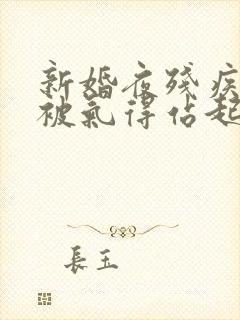 新婚夜残疾
被氣得站起
長玉